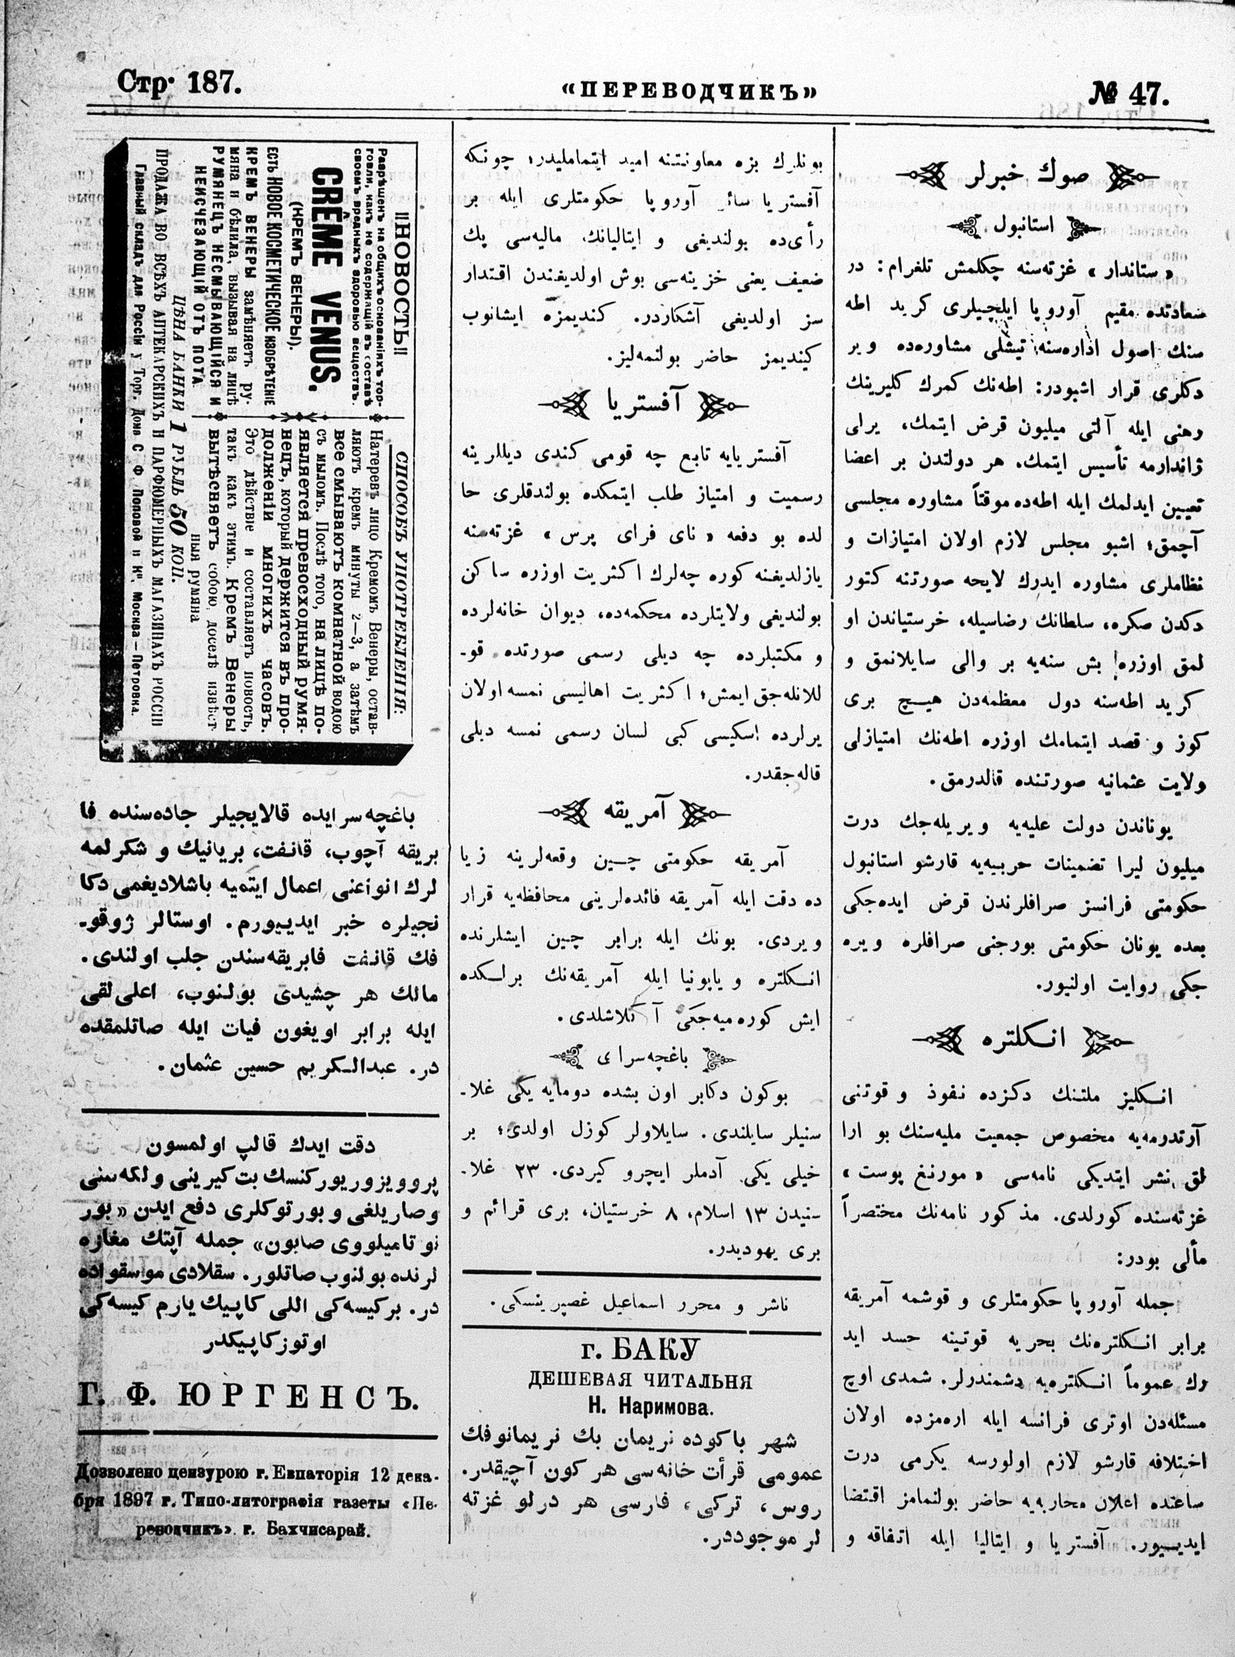 Стр. 187.
«ПЕРЕВОДЧИКЪ»
№ 47.
صوك خبرلر
استانبول
« ستاندار » غزته‌سنه چكلمش تلغرام: در
سعادتده مقيم آوروپا ايلچيلری كريد اطه
سنك اصول اداره‌سنه تيشلی مشاوره‌ده وير
دكلری قرار اشبودر: اطه‌نك كمرك كليرينك
رهنی ايله آلتی ميليون قرض ايتمك، يرلی
ژاندارمه تأسيس ايتمك. هر دولتدن بر اعضا
تعيين ايدلمك ايله اطه‌ده موقتاً مشاوره مجلسی
آچمق؛ اشبو مجلس لازم اولان امتيازات و
نظاملری مشاوره ايدرك لايحه صورتنه كتور
دكدن صكره، سلطانك رضاسيله، خرستياندن او
لمق اوزره بش سنه‌يه بر والی سايلانمق و
كريد اطه‌سنه دول معظمه‌دن هيچ بری
كوز و قصد ايتمامك اوزره اطه‌نك امتيازلی
ولايت عثمانيه صورتنده قالدرمق.
يوناندن دولت عليه‌يه ويريله‌جك درت
ميليون ليرا تضمينات حربيه‌يه قارشو استانبول
حكومتی فرانسز صرافلرندن قرض ايده‌جكی
بعده يونان حكومتی بورجنی صرافلره ويره
جكی روايت اولنيور.
انكلتره
انكليز ملتنك دكزده نفوذ و قوتنی
آرتدرمه‌يه مخصوص جمعيت مليه‌سنك بو ارا
لق نشر ايتديكی نامه‌سی « مورنغ پوست »
غزته‌سنده كورلدی. مذكور نامه‌نك مختصراً
مألی بودر:
جمله آوروپا حكومتلری و قوشمه آمريقه
برابر انكلتره‌نك بحريه قوتينه حسد ايد
رك عموماً انكلتره‌يه دشمندرلر. شمدی اوچ
مسئله‌دن اوتری فرانسه ايله اره‌مزده اولان
اختلافه قارشو لازم اولورسه يكرمی درت
ساعتده اعلان محاربه‌يه حاضر بولنمامز اقتضا
ايديسيور. آفستريا و ايتاليا ايله اتفاقه و
بونلرك بزه معاونتنه اميد ايتماملیدر؛ چونكه
آفستريا سائر آوروپا حكومتلری ايله بر
رأی‌ده بولنديغی و ايتاليانك ماليه‌سی پك
ضعيف يعنی خزينه‌سی بوش اولديغندن اقتدار
سز اولديغی آشكاردر. كنديمزه ايشانوب
كينديمز حاضر بولنمه‌ليز.
آفستريا
آفستريايه تابع چه قومی كندی ديللرينه
رسميت و امتياز طلب ايتمكده بولندقلری حا
لده بو دفعه « نای فرای پرس » غزته‌سنه
يازلديغنه كوره چه‌لرك اكثريت اوزره ساكن
بولنديغی ولايتلرده محكمه‌ده، ديوان خانه‌لرده
و مكتبلرده چه ديلی رسمی صورتده قو-
للانله‌جق ايمش؛ اكثريت اهاليسی نمسه اولان
يرلرده اسكيسی كبی لسان رسمی نمسه ديلی
قاله‌جقدر.
آمريقه
آمريقه حكومتی چين وقعه‌لرينه زيا
ده دقت ايله آمريقه فائده‌لرينی محافظه‌يه قرار
ويردی. بونك ايله برابر چين ايشلرنده
انكلتره و ياپونيا ايله آمريقه‌نك برلكده
ايش كوره‌ميه‌جكی آكلاشلدی.
باغچه‌سرای
بوكون دكابر اون بشده دومايه يكی غلا-
سنيلر سايلندی. سايلاولر كوزل اولدی؛ بر
خيلی يكی آدملر ايچرو كيردی. ۲۳ غلا-
سنيدن ۱۳ اسلام، ۸ خرستيان، بری قرائم و
بری يهوديدر.
ناشر و محرر اسماعيل غصپرينسكی.
г. БАКУ
ДЕШЕВАЯ ЧИТАЛЬНЯ
Н. Наримова.
شهر باكوده نريمان بك نريمانوفك
عمومی قرأت خانه‌سی هر كون آچيقدر.
روس، تركی، فارسی هر درلو غزته
لر موجوددر.
!!НОВОСТЬ!!
Разрѣшенъ на общихъ основанiяхъ тор-
говли, какъ не содержащiй въ составѣ
своемъ вредныхъ здоровью веществъ.
CRÊME VENUS,
(КРЕМЪ ВЕНЕРЫ).
ЕСТЬ НОВОЕ КОСМЕТИЧЕСКОЕ ИЗОБРѢТЕНIЕ
КРЕМЪ ВЕНЕРЫ замѣняетъ ру-
мяна и бѣлила, вызывая на лицѣ
РУМЯНЕЦЪ НЕСМЫВАЮЩIЙСЯ И
НЕИСЧЕЗАЮЩIЙ ОТЪ ПОТА.
СПОСОБЪ УПОТРЕБЛЕНIЯ:
Натеревъ лицо Кремомъ Венеры, остав-
ляютъ кремъ минуты 2—3, а затѣмъ
все смываютъ комнатной водою
съ мыломъ. Послѣ того, на лицѣ по-
является превосходный румя-
нецъ, который держится въ про-
долженiи многихъ часовъ.
Это дѣйствiе и составляетъ новость,
такъ какъ этимъ. Кремъ Венеры
вытѣсняетъ собою доселѣ извѣст-
ныя румяна
ЦѢНА БАНКИ 1 РУБЛЬ 50 КОП.
ПРОДАЖА ВО ВСѢХЪ АПТЕКАРСКИХЪ И ПАРФЮМЕРНЫХЪ МАГАЗИНАХЪ РОССIИ
Главный складъ для Россiи у Торг. Дома С. Ф. Поповой и Ко. Москва—Петровка.
باغچه‌سرايده قالايجيلر جاده‌سنده فا
بريقه آچوب، قانفت، بريانيك و شكرلمه
لرك انواعنی اعمال ايتميه باشلاديغمی دكا
نجيلره خبر ايديیورم. اوستالر ژوقو-
فك قانفت فابريقه‌سندن جلب اولندی.
مالك هر چشيدی بولنوب، اعلی‌لقی
ايله برابر اويغون فيات ايله صاتلمقده
در. عبدالكريم حسين عثمان.
دقت ايدك قالپ اولمسون
پروويزور يوركنسك بت كيرينی و لكه‌سنی
و صاريلغی و بورتوكلری دفع ايدن « بور
نو تاميلووی صابون» جمله آپتك مغازه
لرنده بولنوب صاتلور. سقلادی موسقواده
در. بر كيسه‌كی اللی كاپيك يارم كيسه‌كی
اوتوز كاپيكدر
Г. Ф. ЮРГЕНСЪ.
Дозволено цензурою г. Евпаторiя 12 дека-
бря 1897 г. Типо-литографiя газеты «Пе-
реводчикъ». г. Бахчисарай.